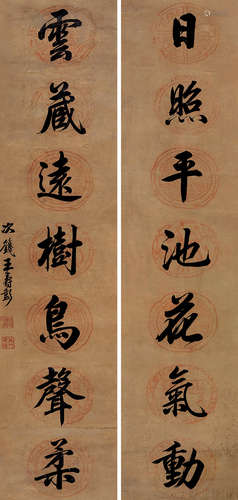 日照平池花氣動
雲藏遠樹鳥聲柔
次籛王壽彭